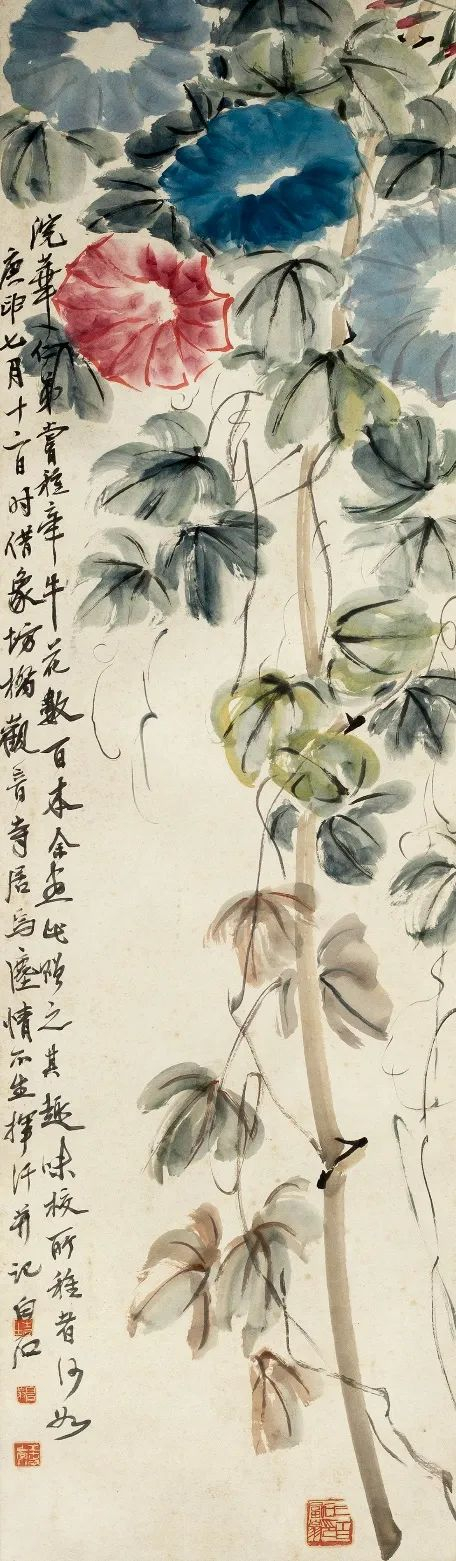 浣華仁弟嘗種牽牛花數百本余画此贈之其趣味校所種者何如
庚申七月十二日时借象坊橋觀音寺居焉塵情不生揮汗并记白石